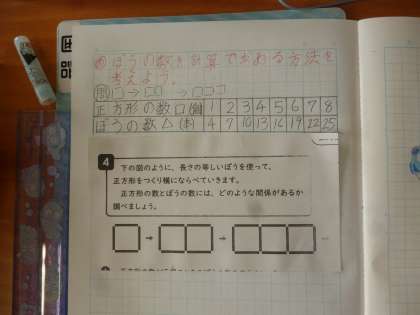 め ぼうの数を計算で求める方法を
考えよう。
図 □→□□→□□□
正方形の数□(個) 1 2 3 4 5 6 7 8
ぼうの数△(本) 4 7 10 13 16 19 22 25
4
下の図のように、長さの等しいぼうを使って、
正方形をつくり横にならべていきます。
正方形の数とぼうの数には、どのような関係があるか
調べましょう。